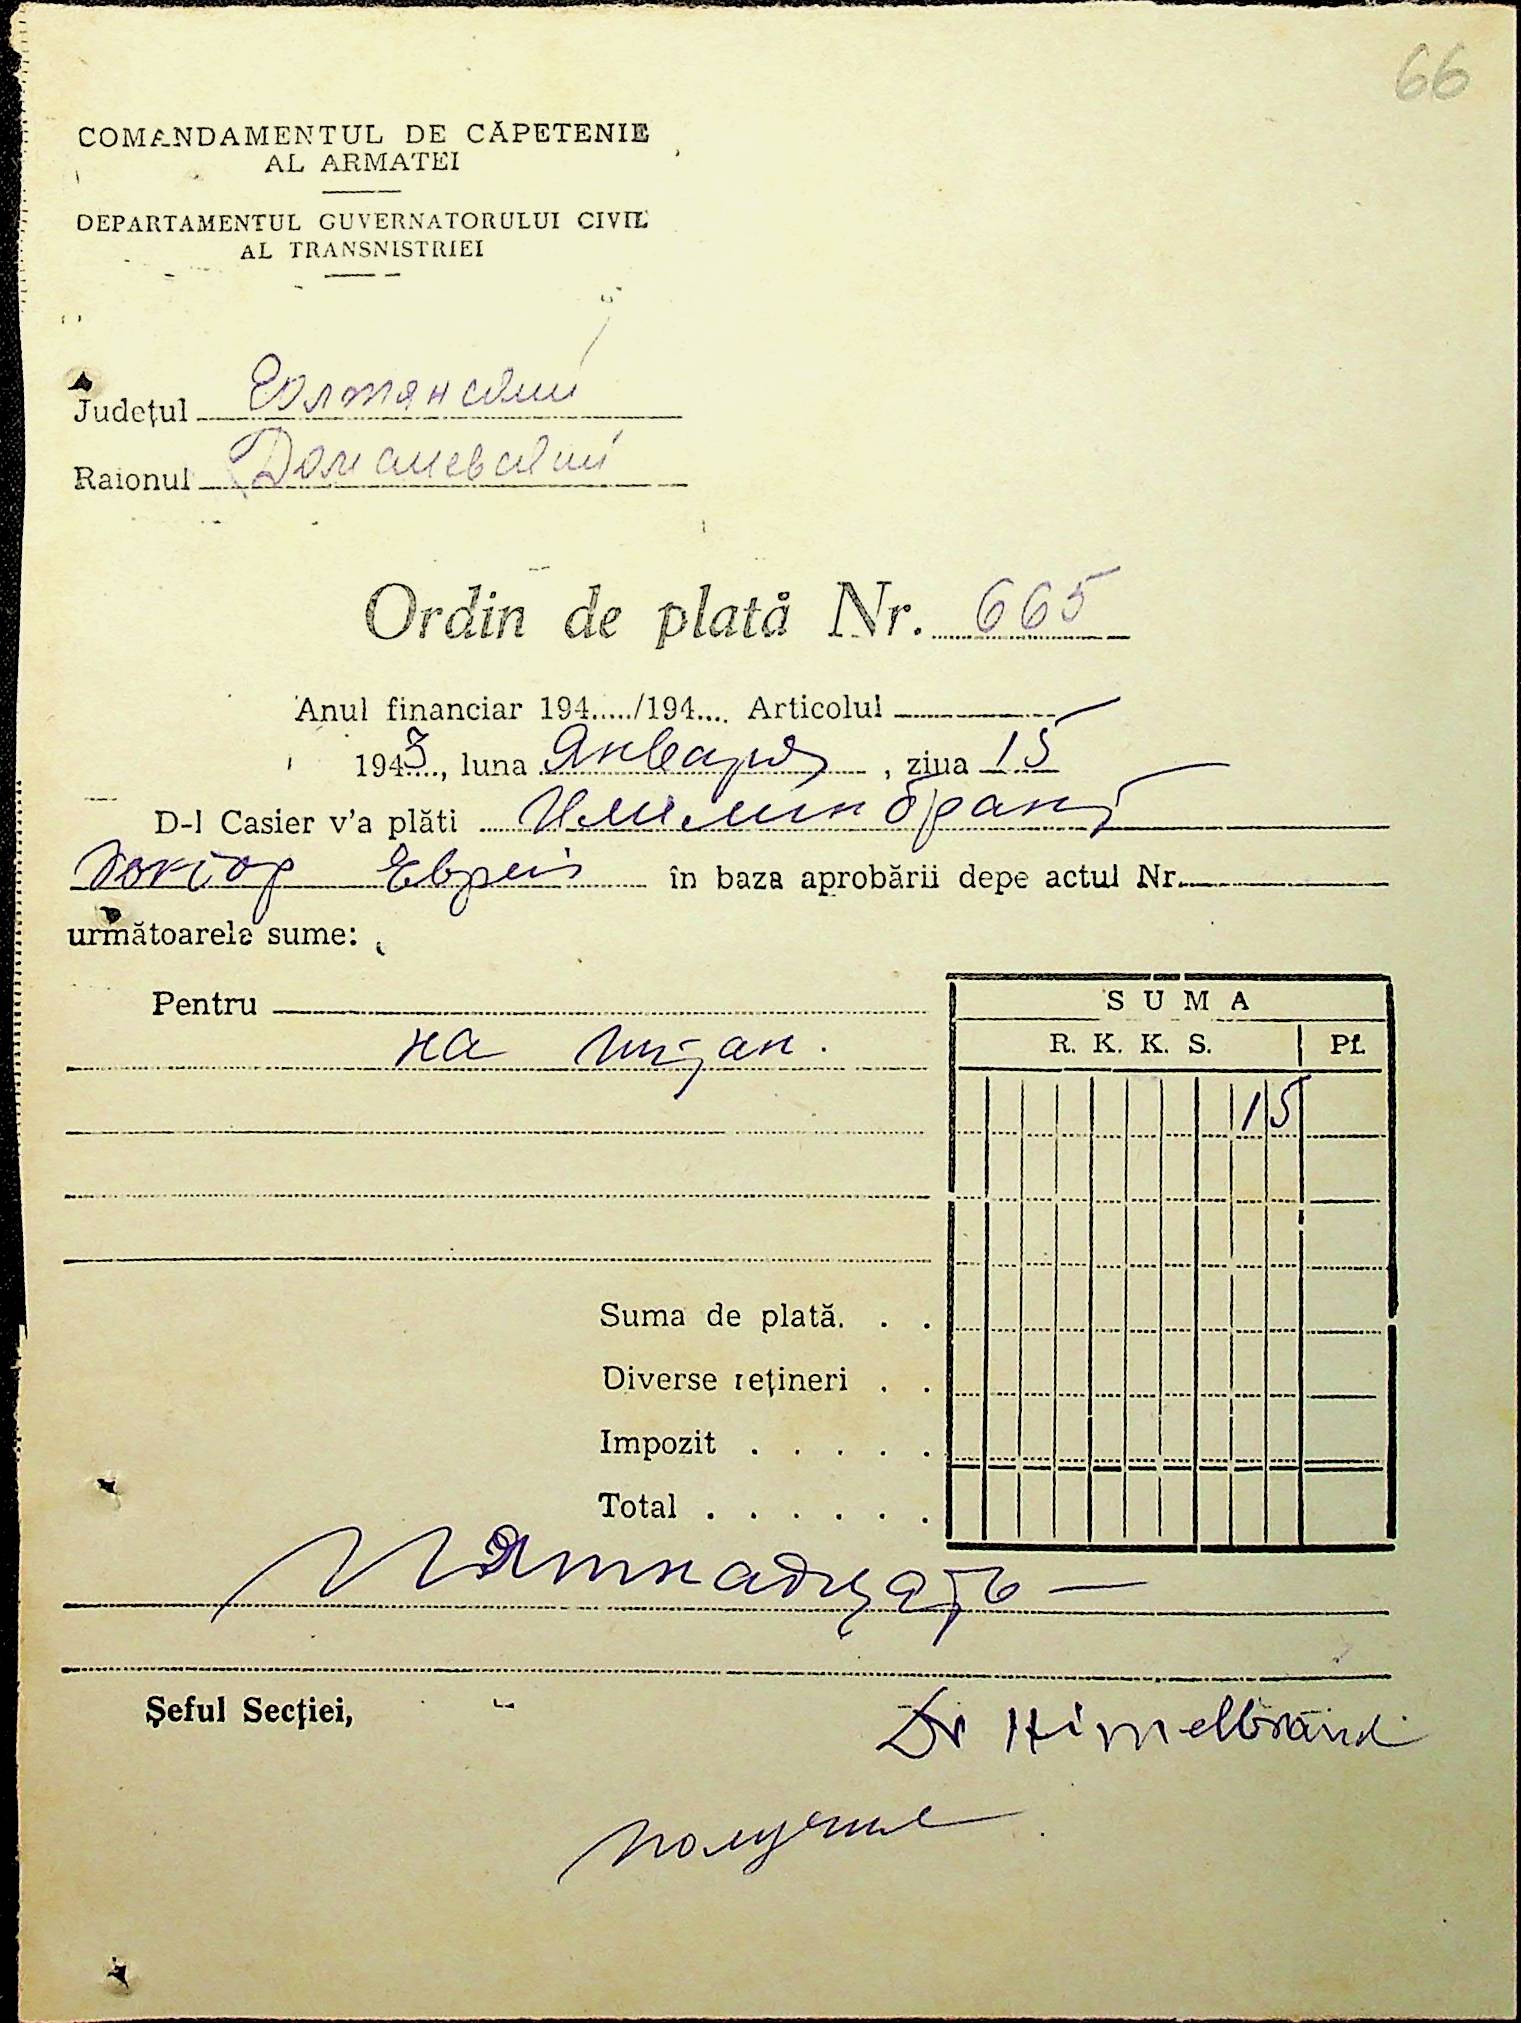 66
COMANDAMENTUL DE CĂPETENIE
AL ARMATEI
DEPARTAMENTUL GUVERNATORULUI CIVIL
AL TRANSNISTRIEI
Județul Голтянский
Raionul Доманевский
Ordin de plată Nr. 665
Anul financiar 194...../194.... Articolul
1943...., luna Января, ziua 15
D-l Casier v'a plăti
Доктор Еврей în baza aprobării depe actul Nr.
următoarele sume:
Pentru
на
SUMA
R. K. K. S. Pf.
15
Suma de plată. . .
Diverse rețineri . .
Impozit . . . . .
Total . . . . . .
Пятнадцать —
Șeful Secției,
Dr Himelbrand
получил